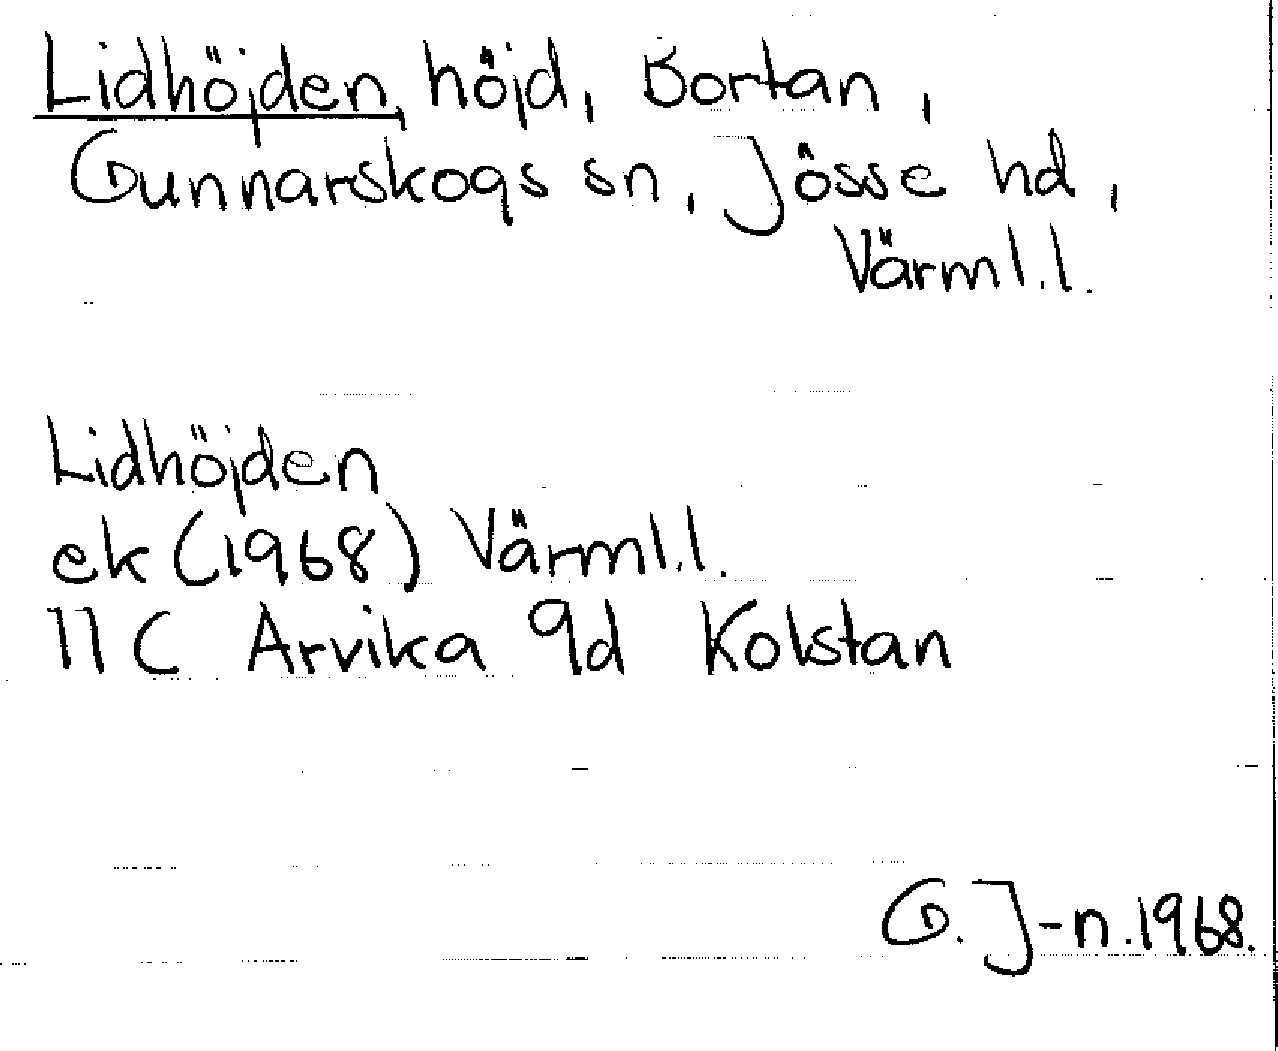 Lidhöjden, höjd, Bortan,
Gunnarskogs sn, Jösse hd,
Värml.l.
Lidhöjden
ek (1968) Värml.l.
11 C Arvika 9d Kolstan
G. J-n. 1968.